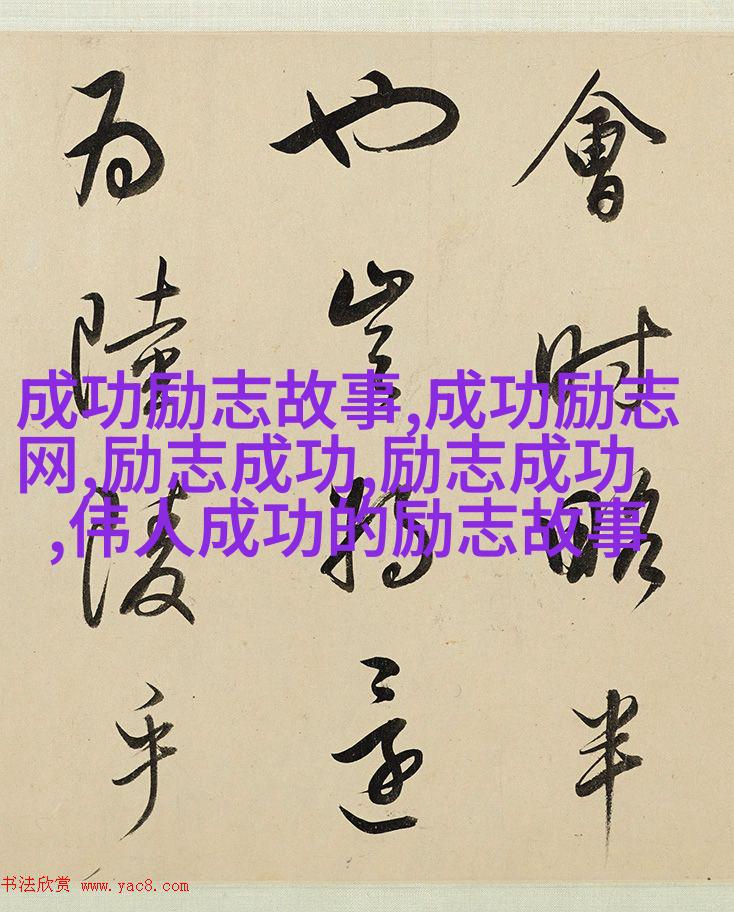 會時略半
也豈
為陵乎
成功励志故事,成功励志
网,励志成功,励志成功
,伟人成功的励志故事
书法欣赏 www.yac8.com